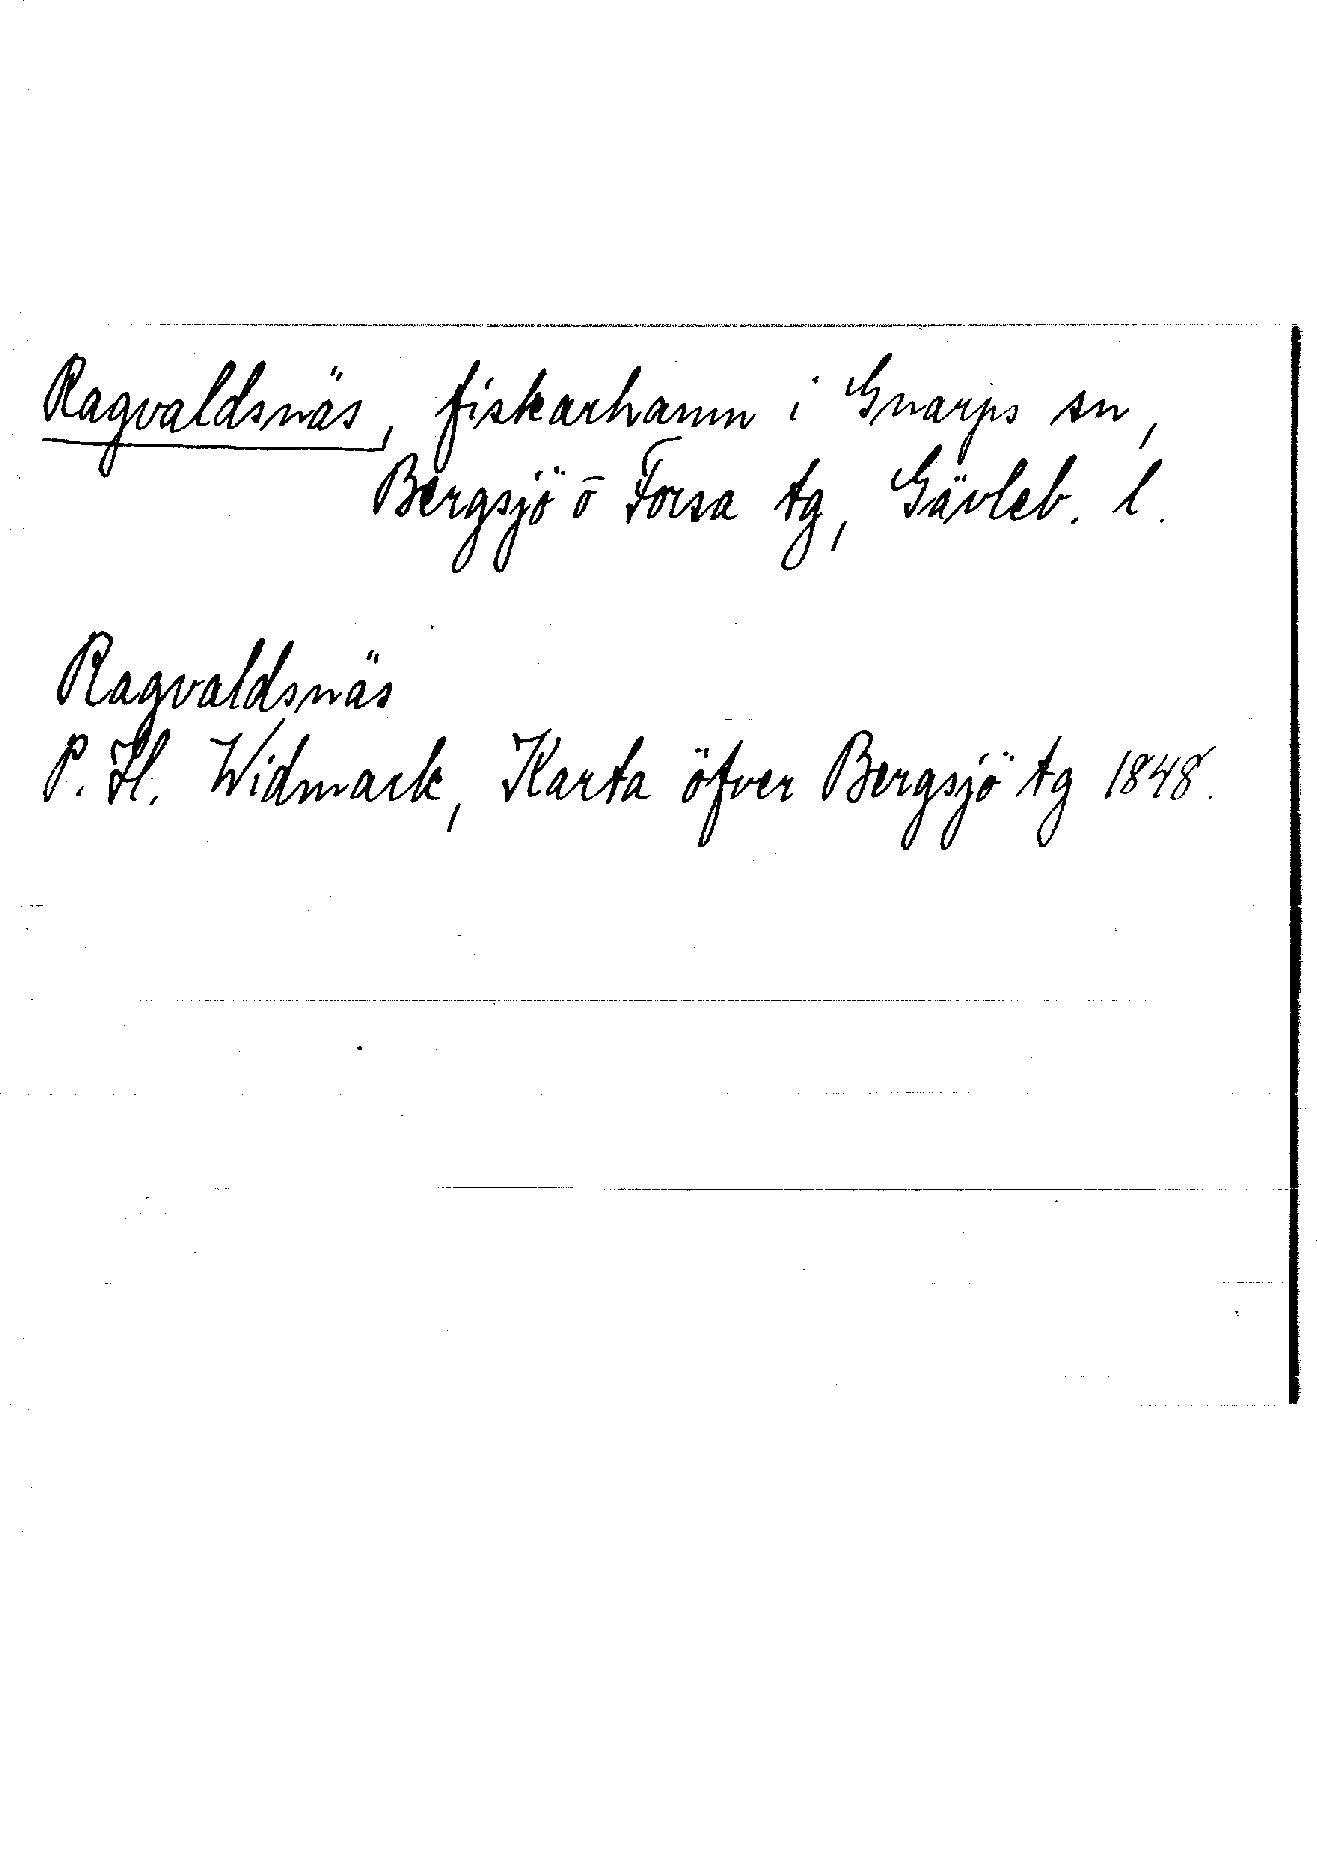 Ragvaldsnäs, fiskarhamn i Gnarps sn,
Bergsjö o Forsa tg, Gävleb. l.
Ragvaldsnäs
P. H. Widmark, Karta öfver Bergsjö tg 1848.